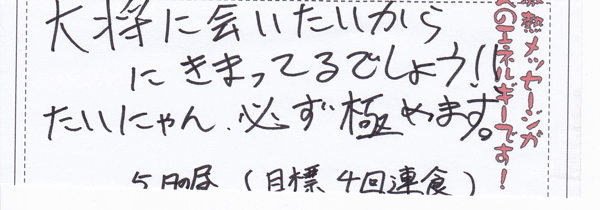 大将に会いたいから
にきまってるでしょう!!
たいにゃん、必ず極めます。
5月の昼(目標 4回連食)
熱メッセージが
のエネルギーです!